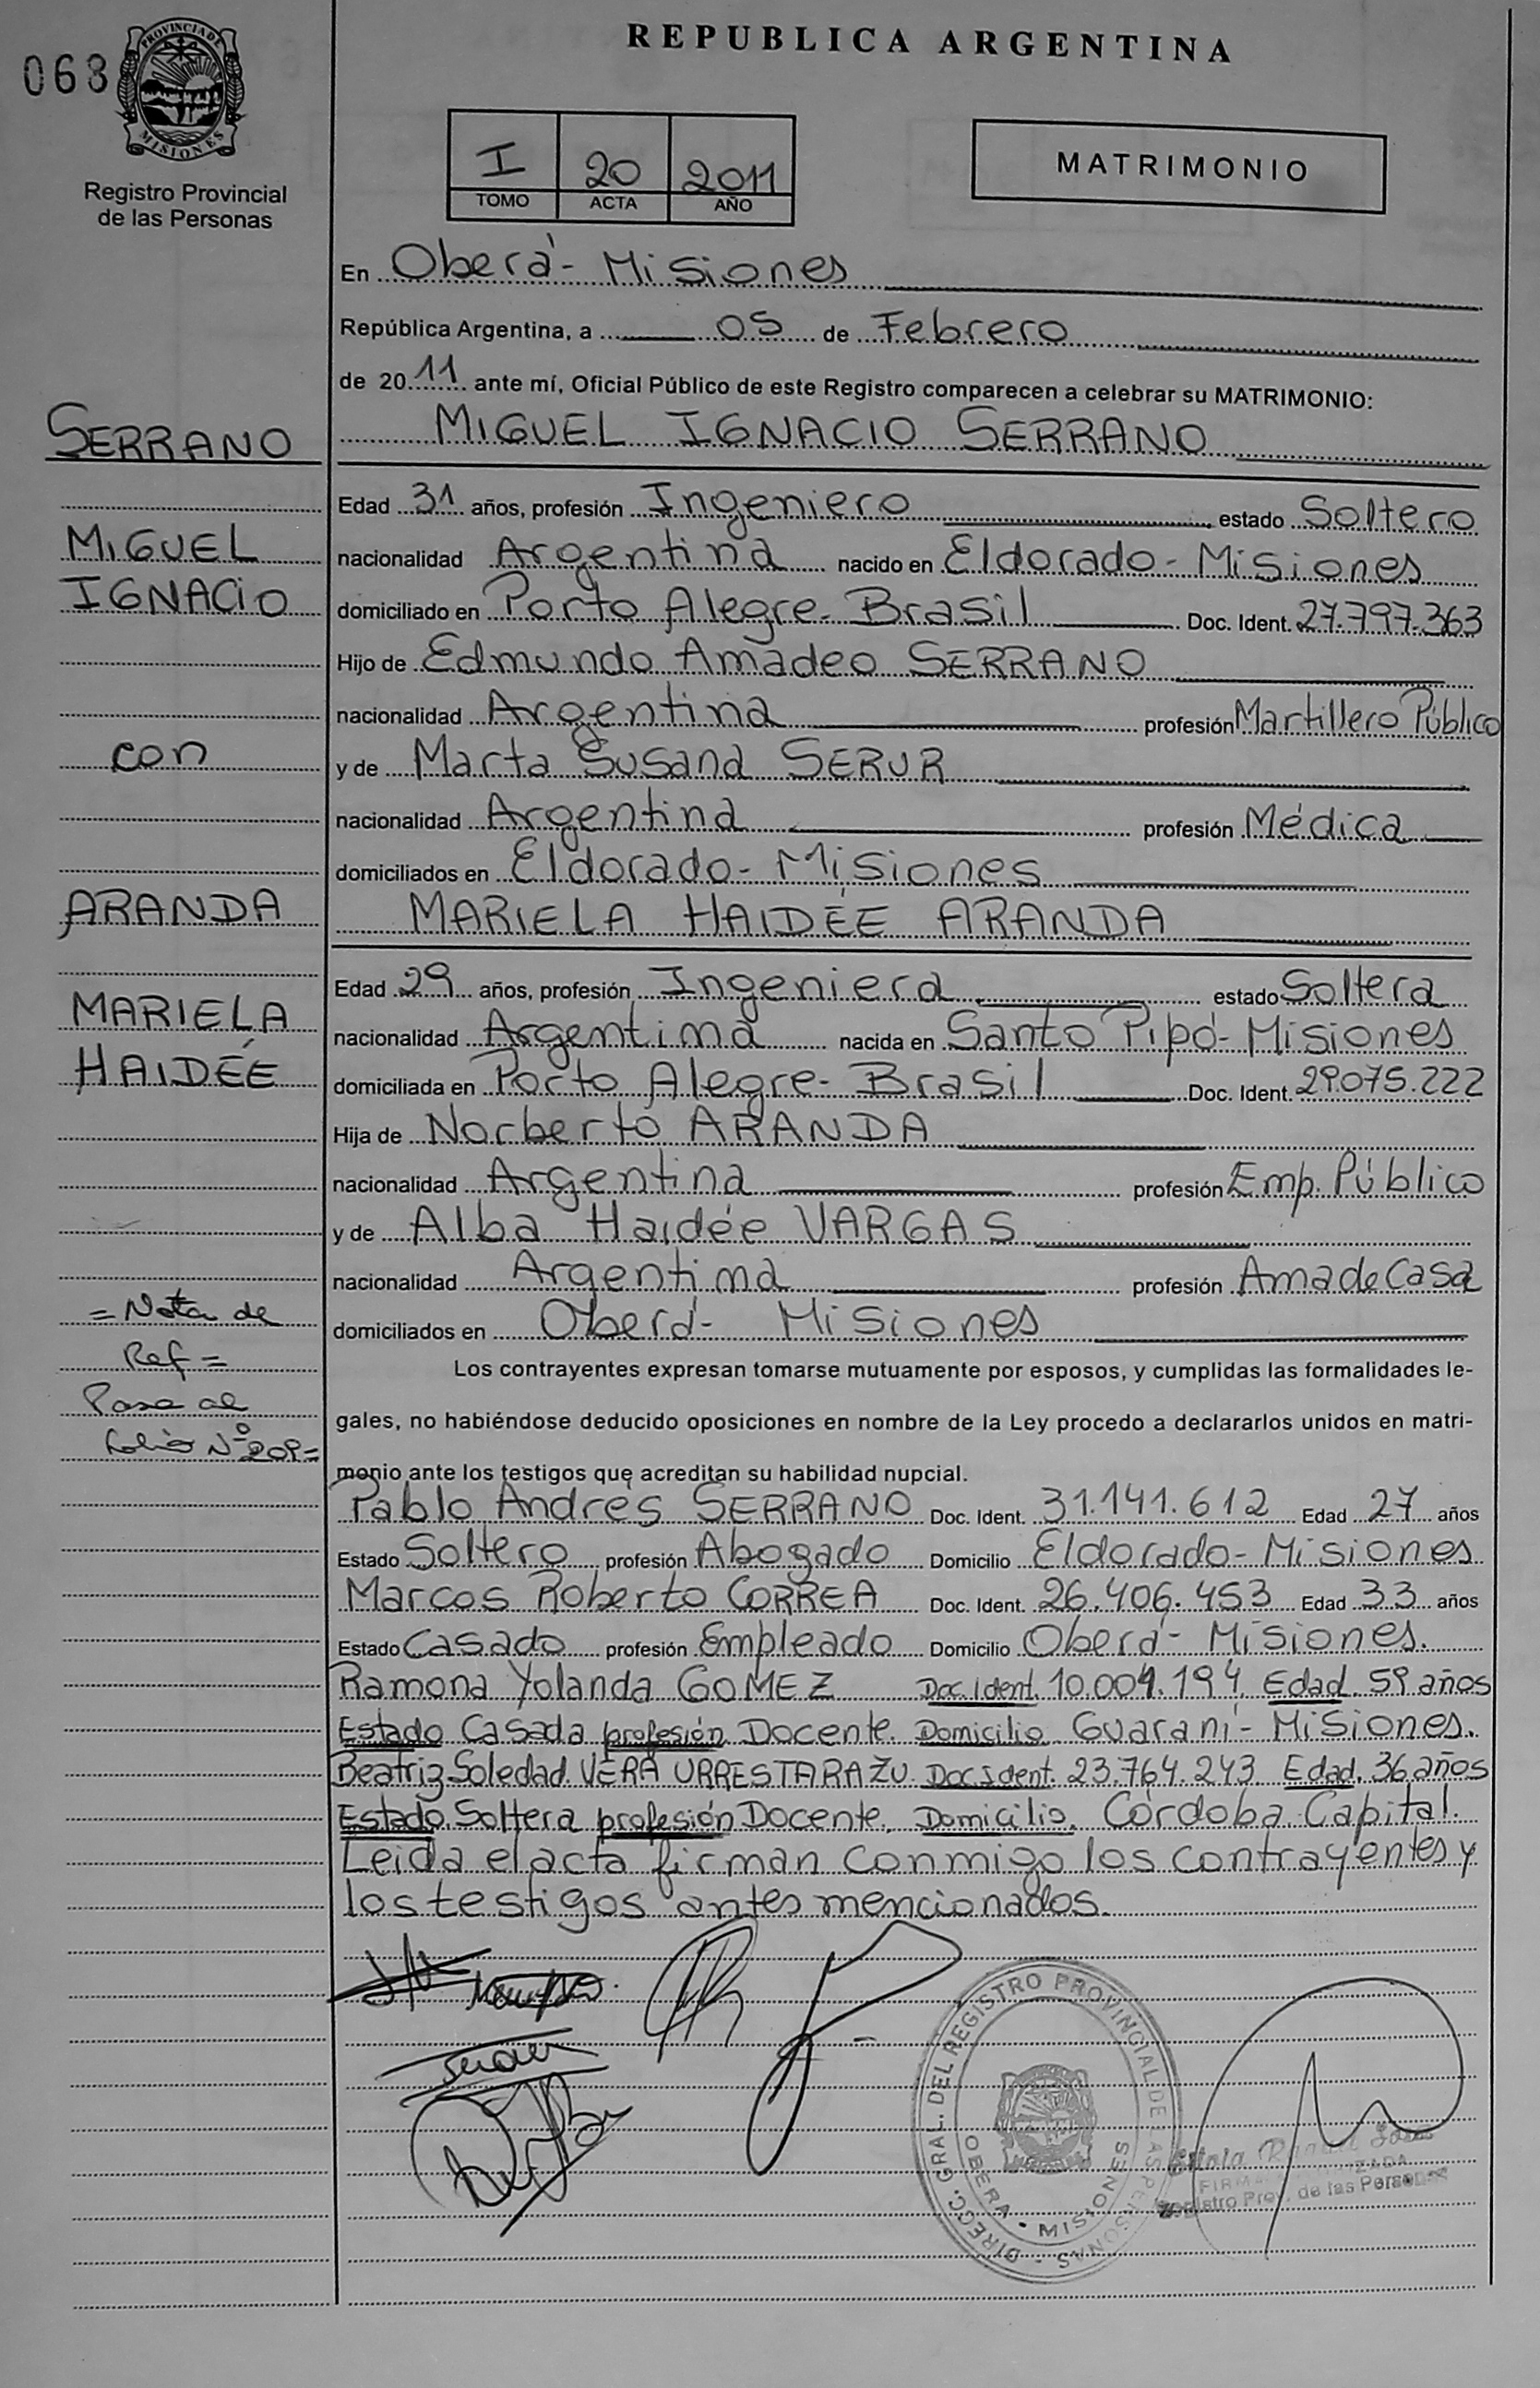 068
PROVINCIA DE
MISIONES
Registro Provincial
de las Personas
REPUBLICA ARGENTINA
I 20 2011
TOMO ACTA AÑO
MATRIMONIO
En Oberá - Misiones
República Argentina, a 05 de Febrero
de 2011 ante mí, Oficial Público de este Registro comparecen a celebrar su MATRIMONIO:
SERRANO
MIGUEL IGNACIO SERRANO
Edad 31 años, profesión Ingeniero estado Soltero
MIGUEL
nacionalidad Argentina nacido en Eldorado - Misiones
IGNACIO
domiciliado en Porto Alegre - Brasil Doc. Ident. 27.797.363
Hijo de Edmundo Amadeo SERRANO
nacionalidad Argentina profesión Martillero Público
con
y de Marta Susana SERUR
nacionalidad Argentina profesión Médica
domiciliados en Eldorado - Misiones
ARANDA
MARIELA HAIDÉE ARANDA
Edad 29 años, profesión Ingeniera estado Soltera
MARIELA
nacionalidad Argentina nacida en Santo Pipó - Misiones
HAIDÉE
domiciliada en Porto Alegre - Brasil Doc. Ident. 29.075.222
Hija de Norberto ARANDA
nacionalidad Argentina profesión Emp. Público
y de Alba Haidée VARGAS
nacionalidad Argentina profesión Ama de Casa
= Nota de
domiciliados en Oberá - Misiones
Ref =
Los contrayentes expresan tomarse mutuamente por esposos, y cumplidas las formalidades le-
Pasa al
gales, no habiéndose deducido oposiciones en nombre de la Ley procedo a declararlos unidos en matri-
folio Nº 209=
monio ante los testigos que acreditan su habilidad nupcial.
Pablo Andrés SERRANO Doc. Ident. 31.141.612 Edad 27 años
Estado Soltero profesión Abogado Domicilio Eldorado - Misiones
Marcos Roberto CORREA Doc. Ident. 26.406.453 Edad 33 años
Estado Casado profesión Empleado Domicilio Oberá - Misiones.
Ramona Yolanda GOMEZ Doc. Ident. 10.004.194 Edad. 59 años
Estado Casada profesión Docente. Domicilio Guaraní - Misiones.
Beatriz Soledad VERA URRESTARAZU. Doc. Ident. 23.764.243 Edad. 36 años
Estado. Soltera profesión Docente. Domicilio. Córdoba Capital.
Leida el acta firman conmigo los contrayentes y
los testigos antes mencionados.
DIREC. GRAL. DEL REGISTRO PROVINCIAL DE LAS PERSONAS
OBERA - MISIONES
FIRMA AUTORIZADA
Registro Prov. de las Personas